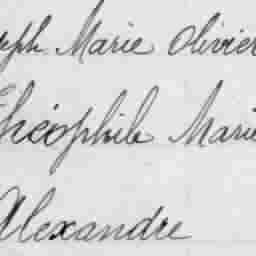 eph Marie Olivier
Théophile Marie
Alexandre